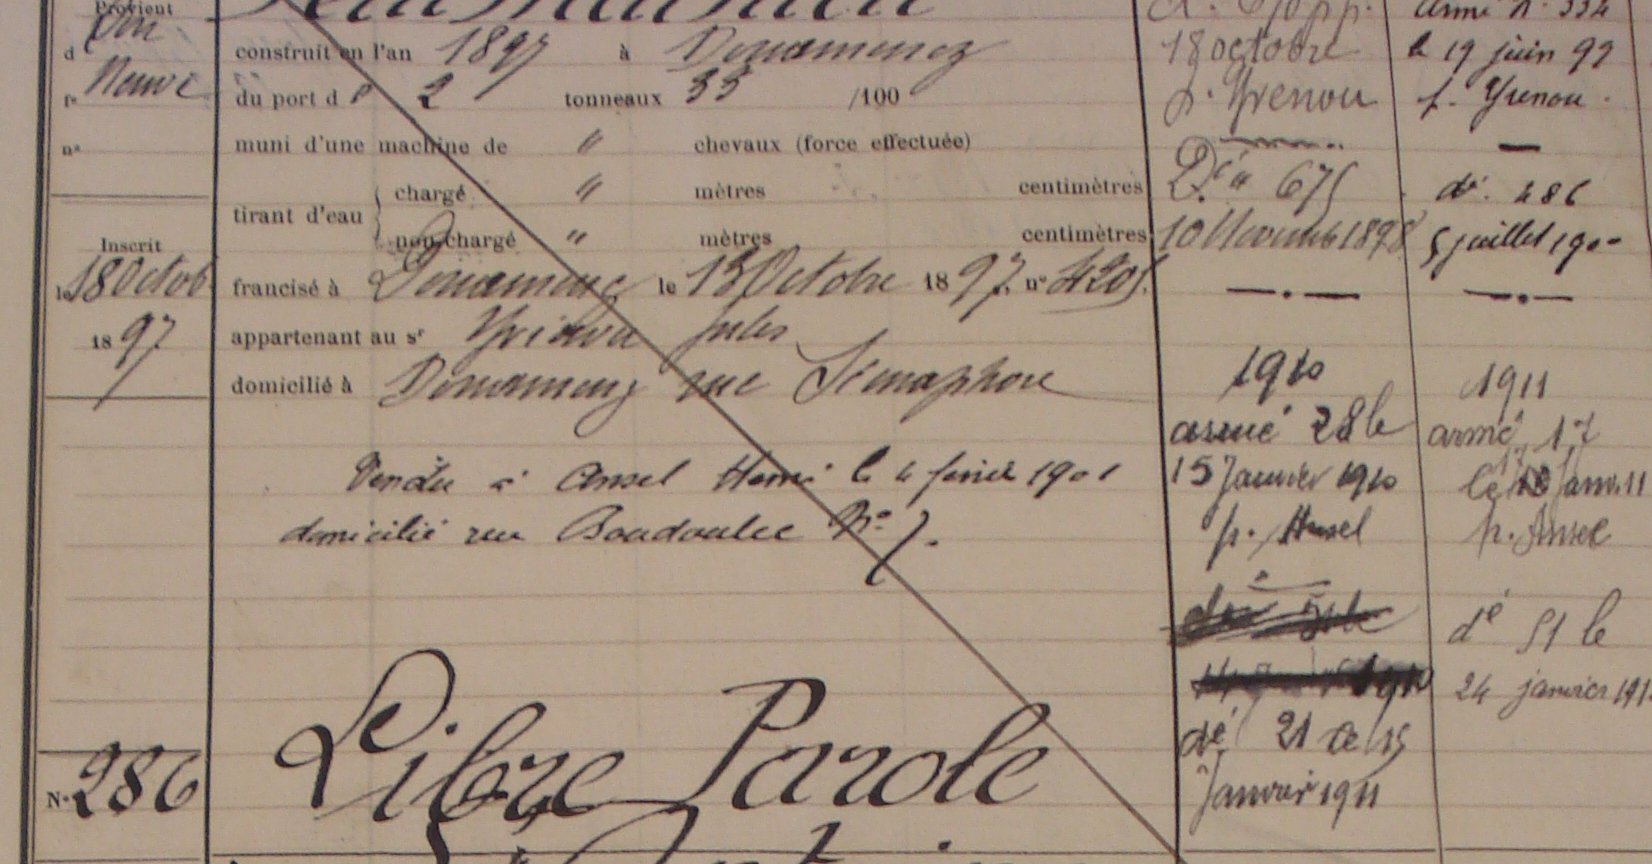 Provient
d
construit en l'an 1897 à Douarnenez
fe Neuve du port de 2 tonneaux 33 /100
no muni d'une machine de " chevaux (force effectuée)
tirant d'eau chargé " mètres centimètres
non chargé " mètres centimètres
Inscrit
le 18 Octob
1897
francisé à Douarnenez le 13 Octobre 1897, no 4205.
appartenant au sr Jules
domicilié à Douarnenez rue Sémaphore
Vendu à Ansel Henri le 4 février 1901
domicilié rue Baudoulec No 7.
No 286 Libre Parole
18 octobre
p. Yvenou
Dé 675
10 Novembre 1898
1910
armé 28 le
15 Janvier 1910
p. Ansel
dé 21 le 15
Janvier 1911
armé No 334
le 19 juin 99
p. Yvenou
dé. 486
5 juillet 190
1911
armé 17
le Janv. 11
p. Ansel
dé 51 le
24 janvier 191